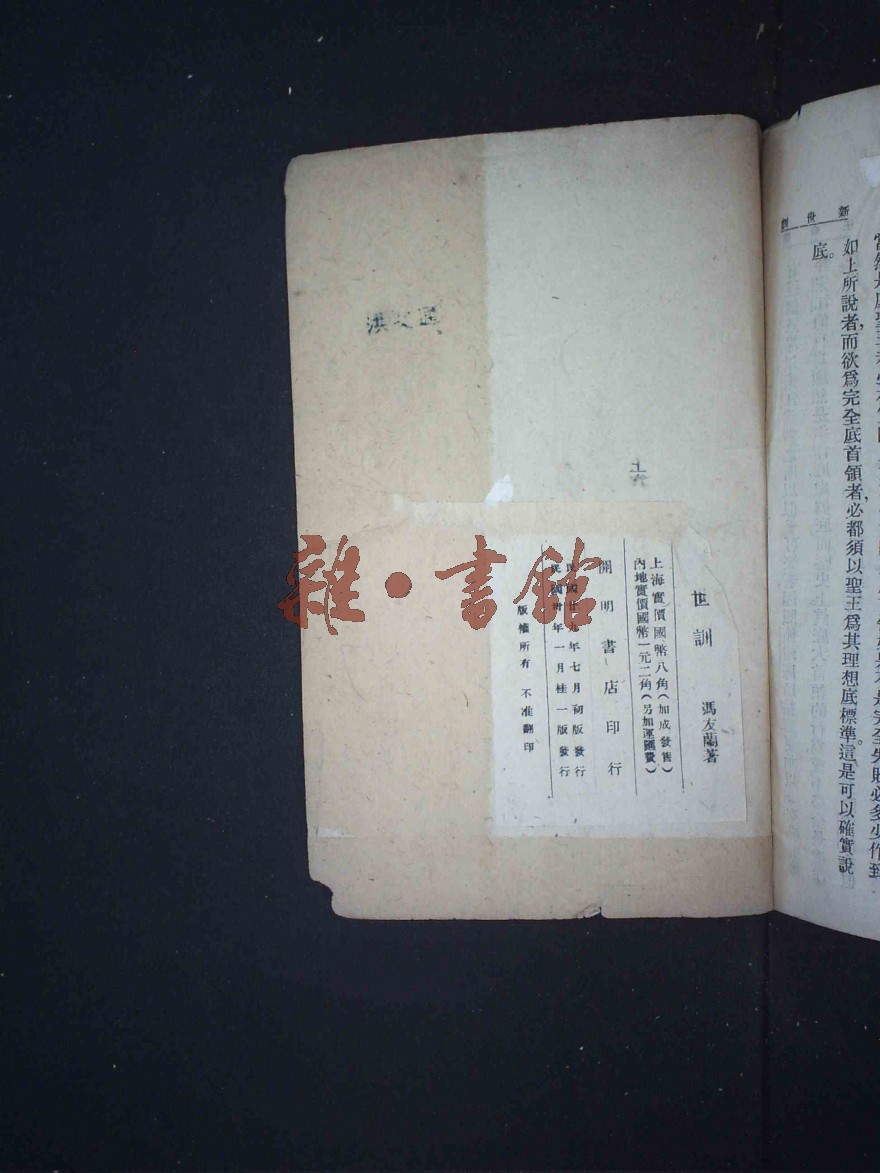 新世訓
如上所說者，而欲爲完全底首領者，必都須以聖王爲其理想底標準。這是可以確實說
底。
世訓
馮友蘭著
上海實價國幣八角（加成發售）
內地實價國幣一元二角（另加運匯費）
開明書店印行
民國廿九年七月初版發行
民國卅年一月桂一版發行
版權所有 不准翻印
雜·書館